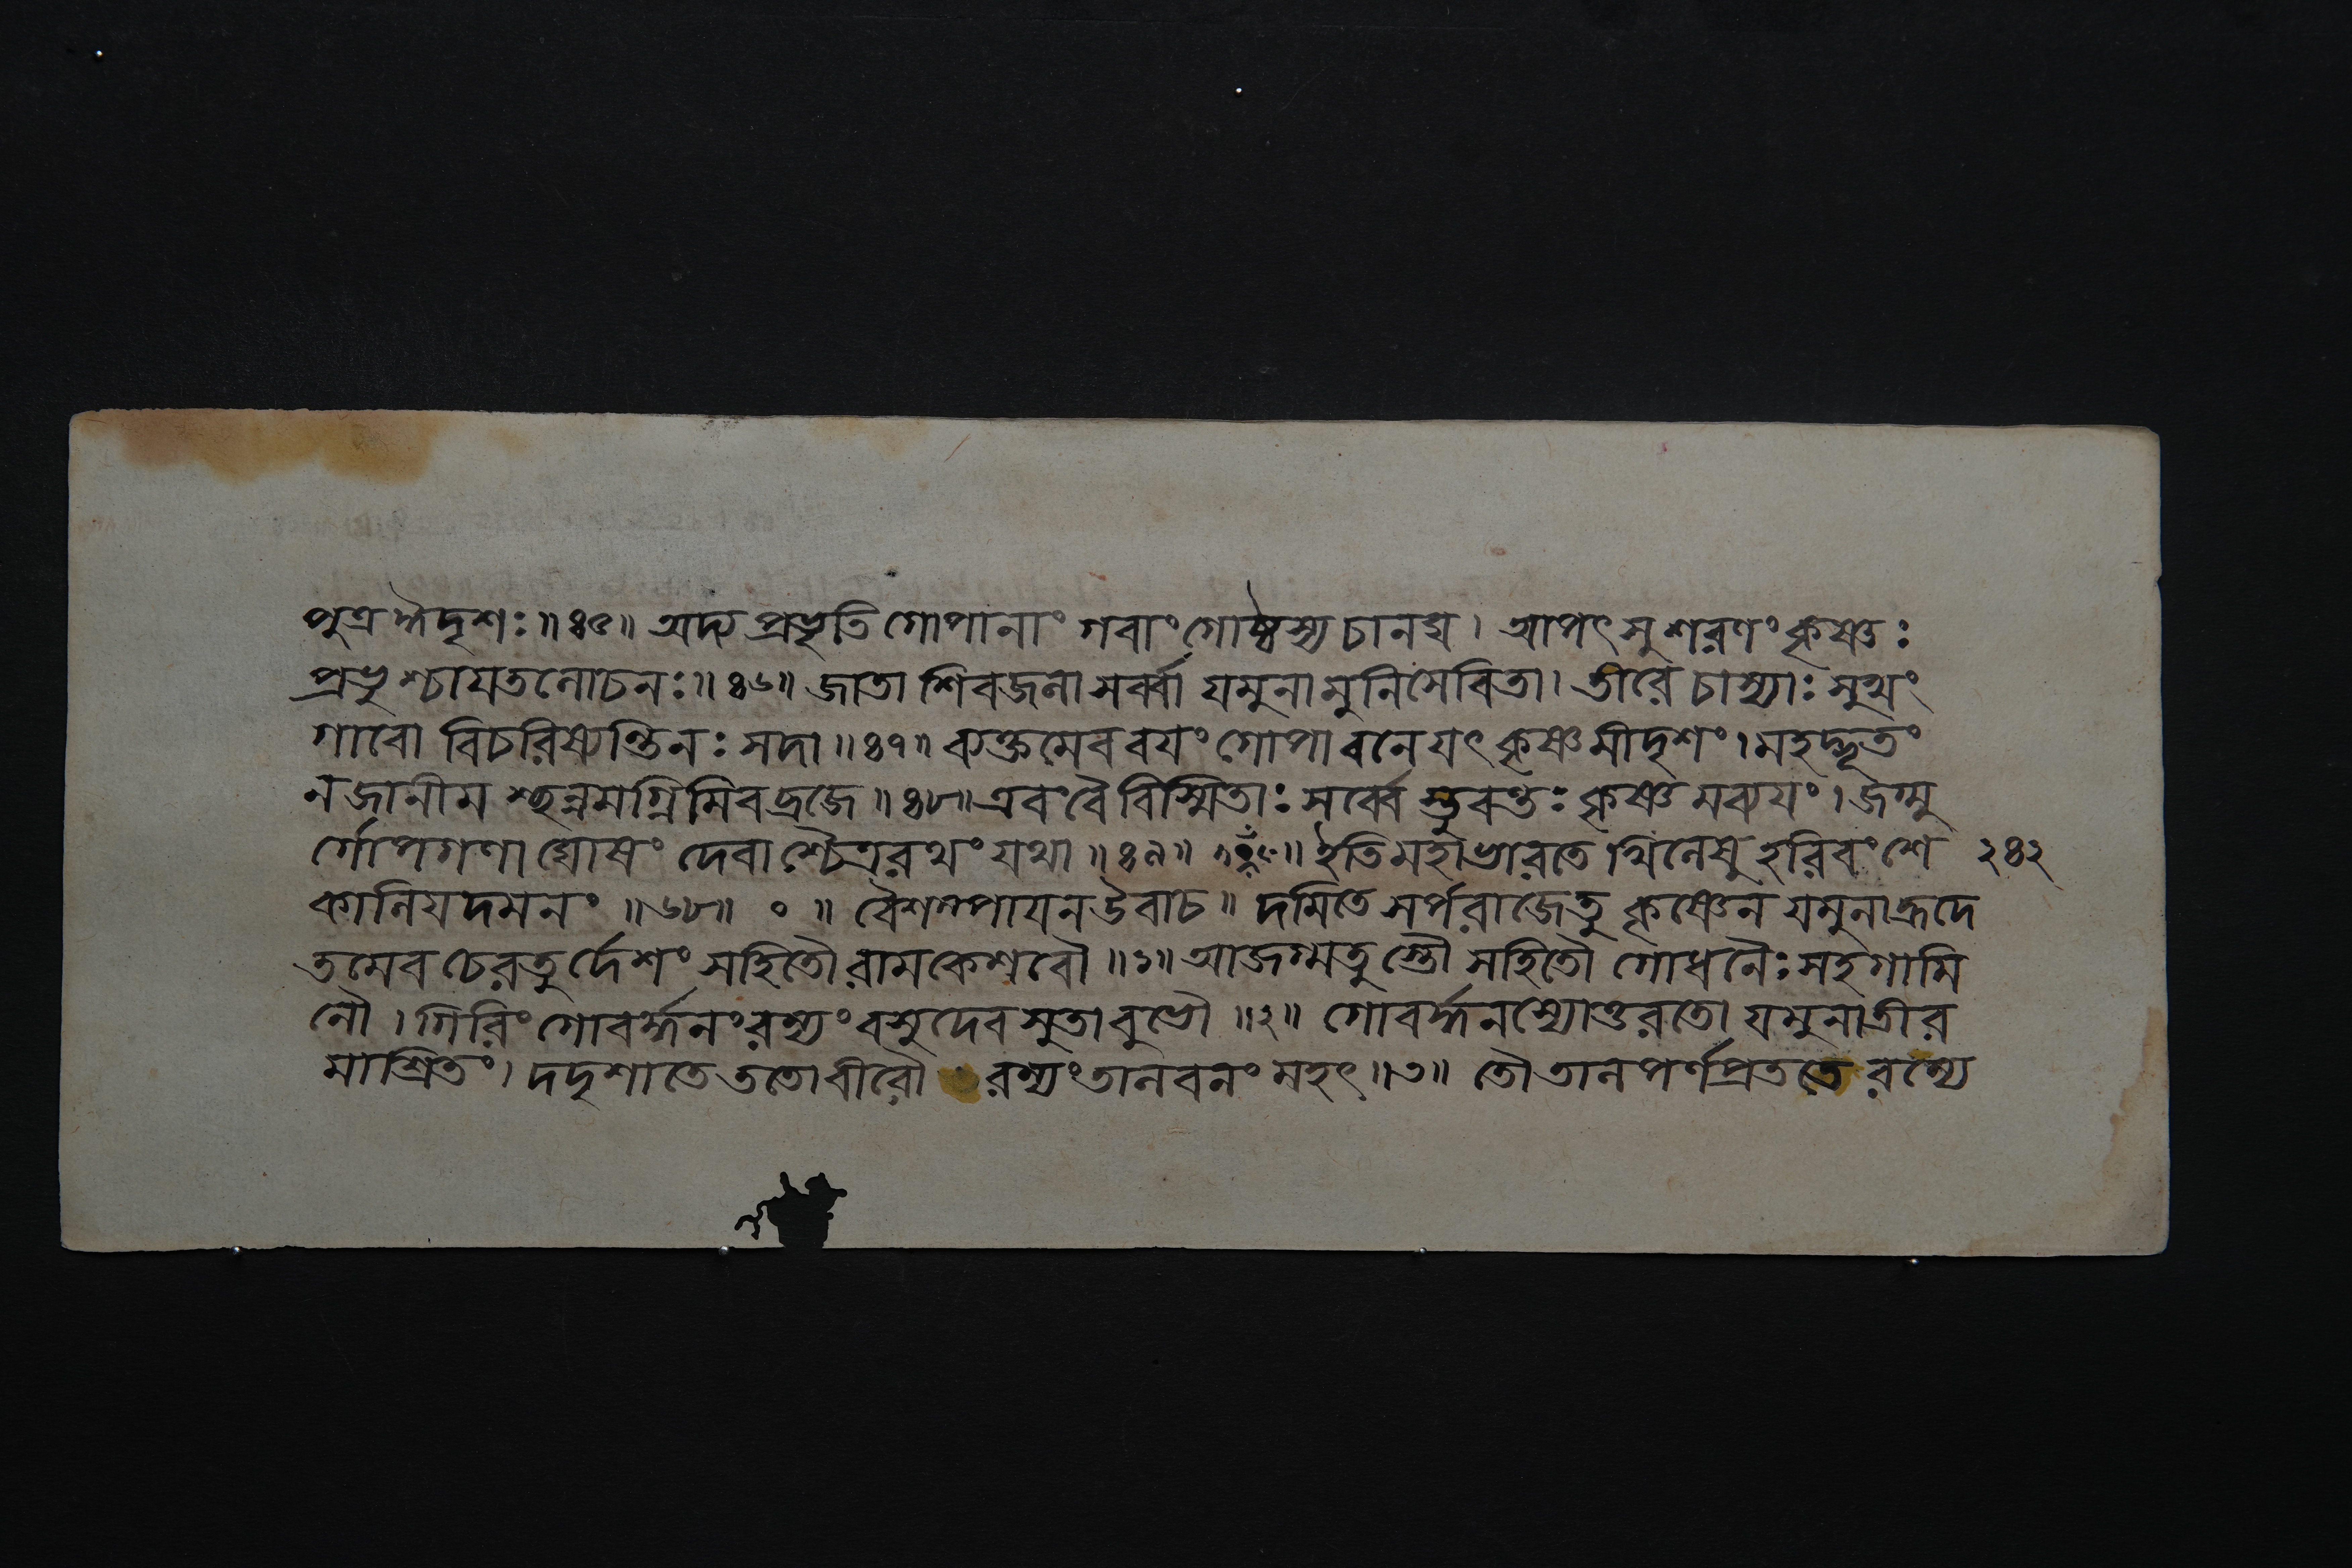 পুত্রমৈদৃশঃ॥৪৫॥ অদ্য প্রভৃতি গোপানাং গবাং গোষ্ঠস্য চানঘ। আপৎসু শরণং কৃষ্ণঃ
প্রভুশ্চায়তলোচনঃ॥৪৬॥ জাতা শিবজলা সর্ব্বা যমুনা মুনিসেবিতা। তীরে চাস্যাঃ সুখং
গাবো বিচরিষ্যন্তি নঃ সদা॥৪৭॥ ব্যক্তমেব বয়ং গোপা বনে যৎ কৃষ্ণমীদৃশং। মহদ্ভূতং
ন জানীমশ্ছন্নমগ্নিমিব ব্রজে॥৪৮॥ এবং বৈ বিস্মিতাঃ সর্ব্বে স্তুবন্তঃ কৃষ্ণমব্যয়ং। জগ্মু
র্গোপগণা ঘোষং দেবাশ্চৈত্ররথং যথা॥৪৯॥ ॥ ইতি মহাভারতে খিলেষু হরিবংশে ২৪২
কালিয়দমনং ॥৬৮॥ ০ ॥ বৈশম্পায়ন উবাচ॥ দমিতে সর্পরাজে তু কৃষ্ণেন যমুনাহ্রদে
তমেব চেরতুর্দেশং সহিতৌ রামকেশবৌ॥১॥ আজগ্মতুস্তৌ সহিতৌ গোধনৈঃ সহগামি
নৌ। গিরিং গোবর্দ্ধনং রম্যং বসুদেবসুতাবুভৌ॥২॥ গোবর্দ্ধনস্যোত্তরতো যমুনাতীর
মাশ্রিতং। দদৃশাতে ততো বীরৌ রম্যং তালবনং মহৎ॥৩॥ তৌ তালপর্ণপ্রততে রম্যে